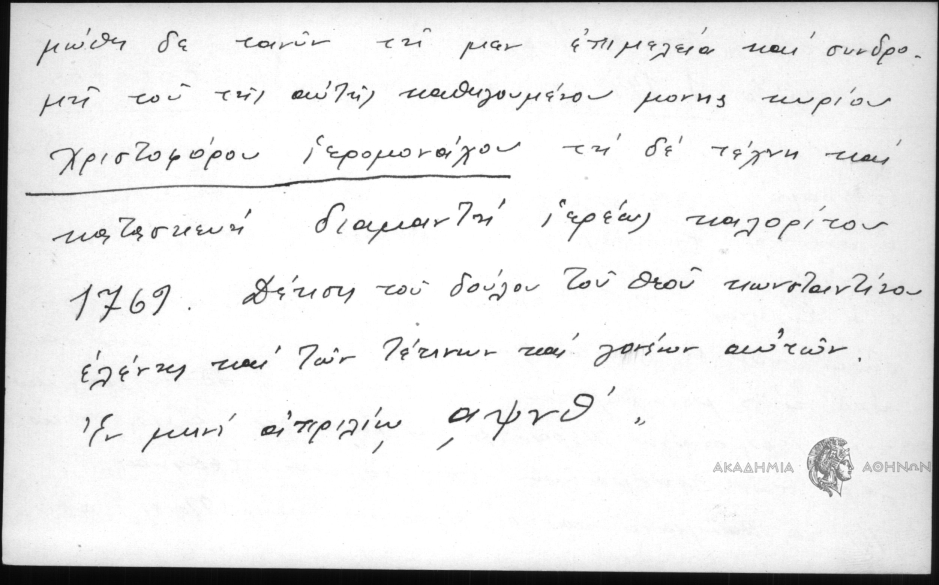 μώθη δε τανῦν τῇ μεν ἐπιμελεία καί συνδρο-
μῇ τοῦ τῆς αὐτῆς καθηγουμένου μονης κυρίου
Χριστοφόρου ἱερομονάχου τῇ δέ τέχνη καί
κατασκευή διαμαντή ἱερέως καλορίτου
1769. Δέησις τοῦ δούλου τοῦ θεοῦ κωνσταντίνου
ἑλένης καί τῶν τέκνων καί γονέων αὐτῶν.
Ἐν μηνί ἀπριλίῳ ͵αψνθ΄ "
ΑΚΑΔΗΜΙΑ ΑΘΗΝΩΝ